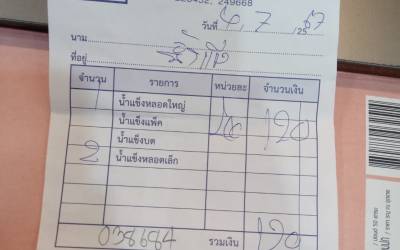 228432, 249668
วันที่ 4 / 7 / 2567
นาม
ที่อยู่
จำนวน รายการ หน่วยละ จำนวนเงิน
1 น้ำแข็งหลอดใหญ่
น้ำแข็งแพ็ค 120
น้ำแข็งบด
2 น้ำแข็งหลอดเล็ก
058684 รวมเงิน 120